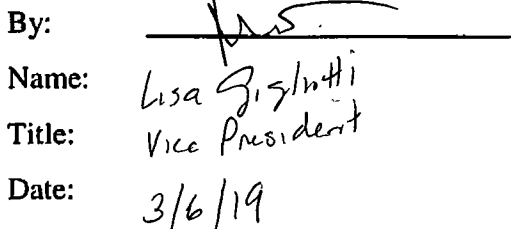 By:
Name: Lisa Gigliotti
Title: Vice President
Date: 3/6/19